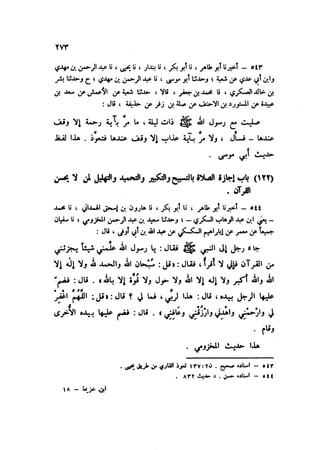 ٢٧٣
٥٤٣ — أخبرنا أبو طاهر ، نا أبو بكر ، نا بندار ، نا يحيى ، نا عبد الرحمن بن مهدي
وابن أبي عدي عن شعبة ؛ وحدثنا أبو موسى ، نا عبد الرحمن بن مهدي ؛ ح وحدثنا بشر
بن خالد العسكري ، نا محمد بن جعفر ، قالا : حدثنا شعبة عن الأعمش عن سعد بن
عبيدة عن المستورد بن الأحنف عن صلة بن زفر عن حذيفة ، قال :
صليت مع رسول الله ﷺ ذات ليلة ، ما مر بآية رحمة إلا وقف
عندها — فسأل ، ولا مر بآية عذاب إلا وقف عندها فتعوذ . هذا لفظ
حديث أبي موسى .
(١٢٢) باب إجازة الصلاة بالتسبيح والتكبير والتحميد والتهليل لمن لا يحسن
القرآن .
٥٤٤ — أخبرنا أبو طاهر ، نا أبو بكر ، نا هارون بن إسحق الهمداني ، نا محمد
— يعني ابن عبد الوهاب السكري — ؛ وحدثنا سعيد بن عبد الرحمن المخزومي ، نا سفيان
جميعاً عن مسعر عن إبراهيم السكسكي عن عبد الله بن أبي أوفى ، قال :
جاء رجل إلى النبي ﷺ فقال : يا رسول الله علمني شيئاً يجزئني
من القرآن فإني لا أقرأ ، فقال : «قل : سبحان الله والحمد لله ولا إله إلا
الله والله أكبر ولا حول ولا قوة إلا بالله » . قال : فضم
عليها الرجل بيده ، قال : هذا لربي ، فما لي ؟ قال : «قل : اللهم اغفر
لي وارحمني واهدني وارزقني وعافني » . قال : فضم عليها بيده الأخرى
وقام .
هذا حديث المخزومي .
٥٤٣ — إسناده صحيح . ن ٢ : ١٣٧ نحوه القاري من طريق يحيى .
٥٤٤ — إسناده حسن . د حديث ٨٣٢ .
ابن خزيمة — ١٨